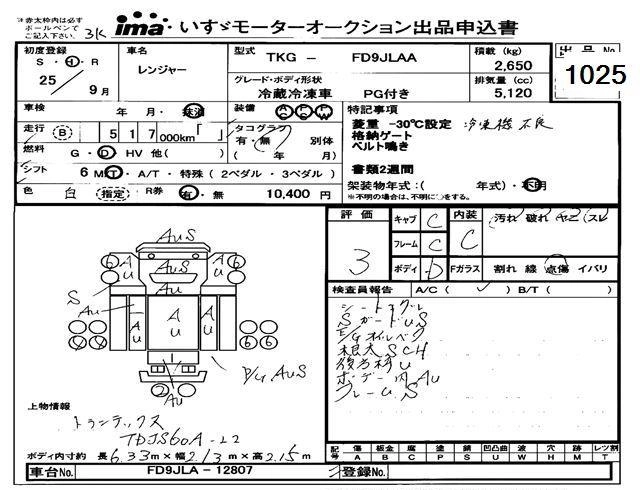 ※赤太枠内は必ず
ボールペンで
ご記入下さい。
3K
ima いすゞモーターオークション出品申込書
初度登録
S・H・R
25年
9月
車名
レンジャー
型式 TKG - FD9JLAA
グレード・ボディ形状
冷蔵冷凍車 PG付き
積載 (kg)
2,650
排気量 (cc)
5,120
出品No
1025
車検 年・月・抹消
装備 AC PS PW
走行 B 517 000km 「 」
タコグラフ
有・無 別体
( 年 月)
燃料 G・D・HV 他( )
シフト 6 MT・A/T・特殊 (2ペダル・3ペダル)
色 白 (指定) R券 有・無 10,400 円
特記事項
菱重 -30℃設定 冷凍機不良
格納ゲート
ベルト鳴き
書類2週間
架装物年式:( 年式)・不明
※不明の場合は、不明に○をする。
評価
3
キャブ C
フレーム C
ボディ D
内装 C
汚れ 破れ ヤニ スレ
Fガラス 割れ 線 点傷 イバリ
検査員報告 A/C( ) B/T( )
S ガードUS
E/Gオイルベタ
根太SCH
ボデー内AU
フレームS
AUS
AUS
A
U
6
6
S
AU
A
U
A
U
A
U
6
6
2
AU
P/G AUS
上物情報
トランテックス
TDJS60A-22
ボディ内寸約 長6.33m×幅2.13m×高2.15m
記号 傷 板金 腐 補 錆 凹凸曲 波 穴 歪 跡 レツ割
A B C P S U W H M X T
車台No. FD9JLA-12807
登録No.